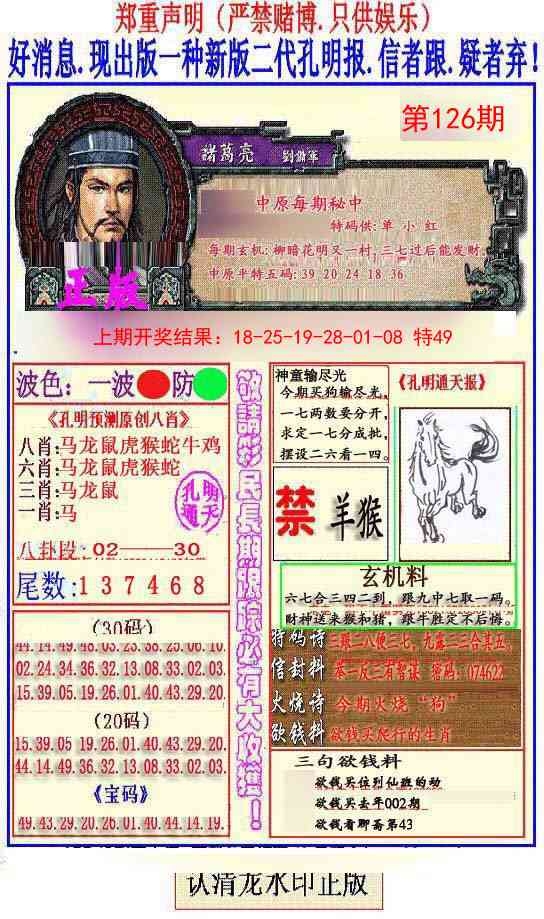 郑重声明（严禁赌博.只供娱乐）
好消息.现出版一种新版二代孔明报.信者跟.疑者弃！
第126期
諸葛亮 劉備軍
中原每期秘中
特码供：单 小 红
每期玄机：柳暗花明又一村，三七过后能发财
中原平特五码：39 20 24 18 36
正版
上期开奖结果：18-25-19-28-01-08 特49
波色：一波 防
《孔明预测原创八肖》
八肖：马龙鼠虎猴蛇牛鸡
六肖：马龙鼠虎猴蛇
三肖：马龙鼠
一肖：马
孔明
通天
八卦段：02——30
尾数：137468
(30码)
44.14.49.48.03.23.38.25.06.10.
02.24.34.36.32.13.08.33.02.03.
15.39.05.19.26.01.40.43.29.20.
(20码)
15.39.05.19.26.01.40.43.29.20.
44.14.49.36.32.13.08.33.02.03.
《宝码》
49.43.29.20.26.01.40.44.14.19.
敬請彩民長期跟踪必有大收獲！
神童输尽光
今期买狗输尽光，
一七两数要分开，
求定一七分成批，
摆设二六看一四。
禁 羊猴
《孔明通天报》
玄机料
六七合三四二到，跟九中七取一码。
财神送来猴和猪，跟牛胜定不后悔。
特码诗 三跟二八便三七，九露三三合其五。
信封料 举一反三有智谋 密码：074622
火烧诗 今期火烧“狗”
欲钱料 欲钱买爬行的生肖
三句欲钱料
欲钱买位列仙班的动
欲钱买去年002期
欲钱看聊斋第43
认清龙水印正版